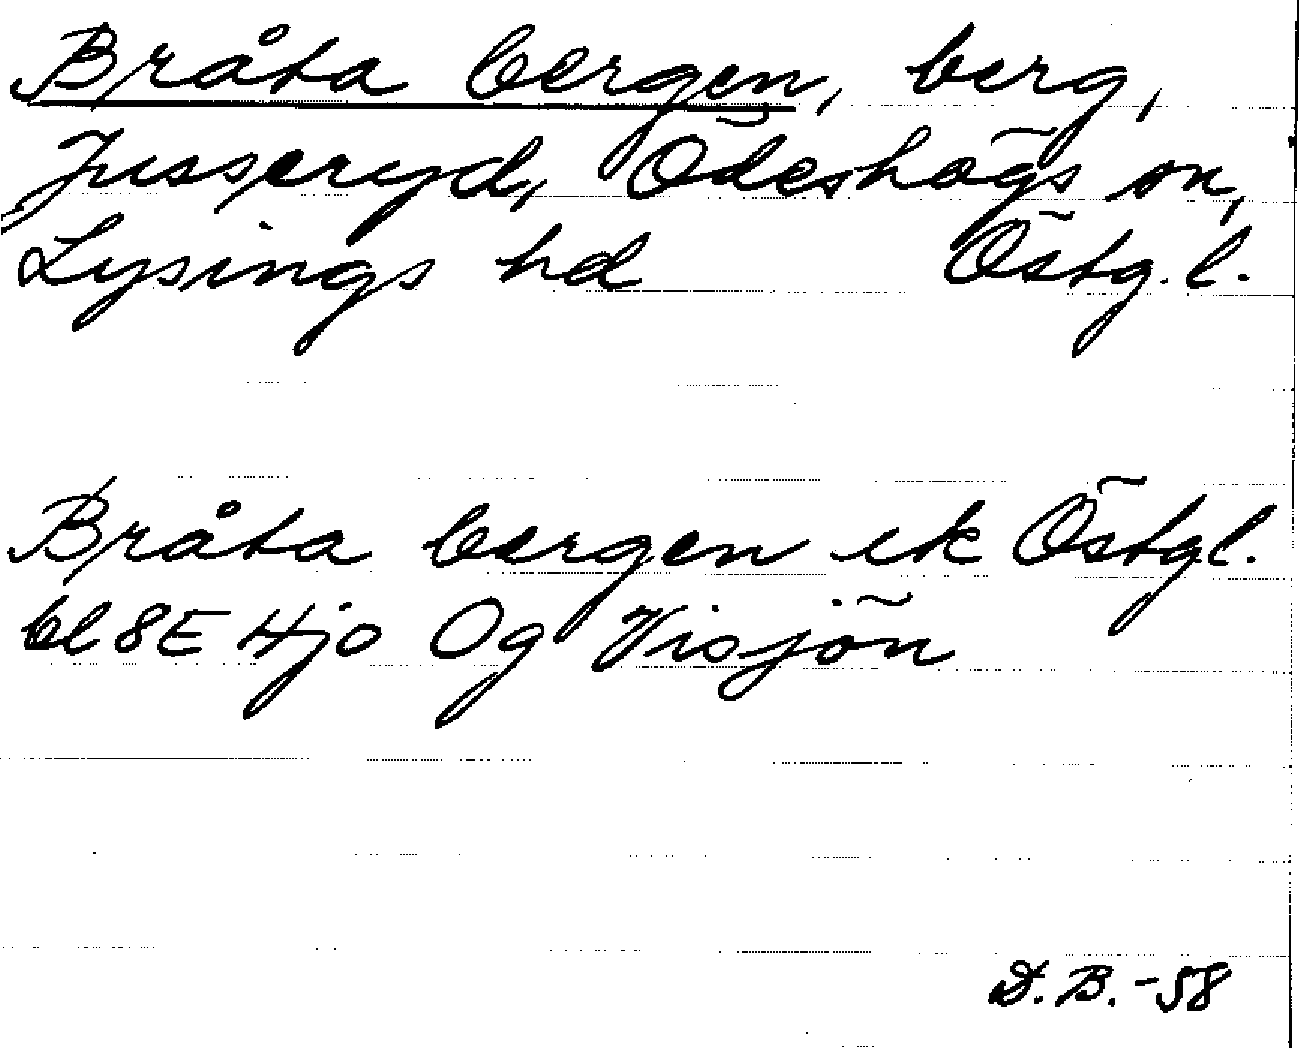 Bråta bergen, berg,
Jusseryd, Ödeshögs sn,
Lysings hd Östg. l.
Bråta bergen ek Östgl.
bl 8E Hjo Og Visjön
D. B. -58